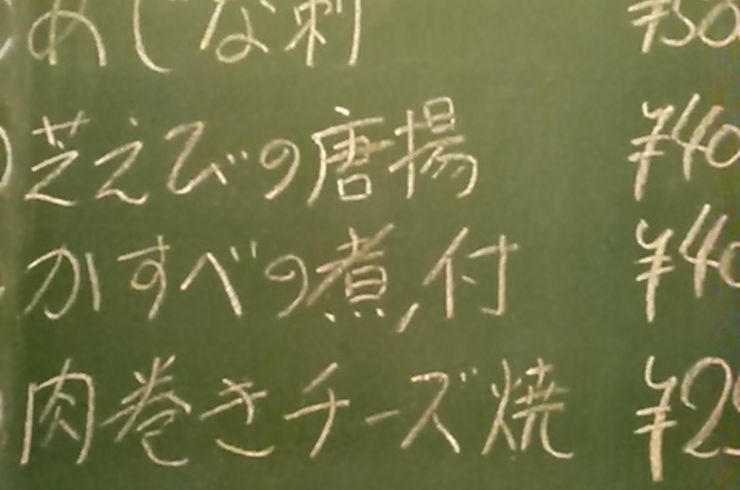 あじな刺 ¥50
芝えびの唐揚 ¥40
かすべの煮付 ¥40
肉巻きチーズ焼 ¥25